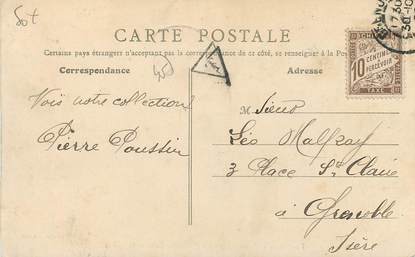 50t
CARTE POSTALE
Certains pays étrangers n'acceptant pas la correspondance de ce côté, se renseigner à la Poste
Correspondance
Adresse
Vois notre collection
Pierre Poussin
M sieur
Léo Malfray
3 Place St Claire
à Grenoble
Isère
10
CENTIMES
A PERCEVOIR
TAXE